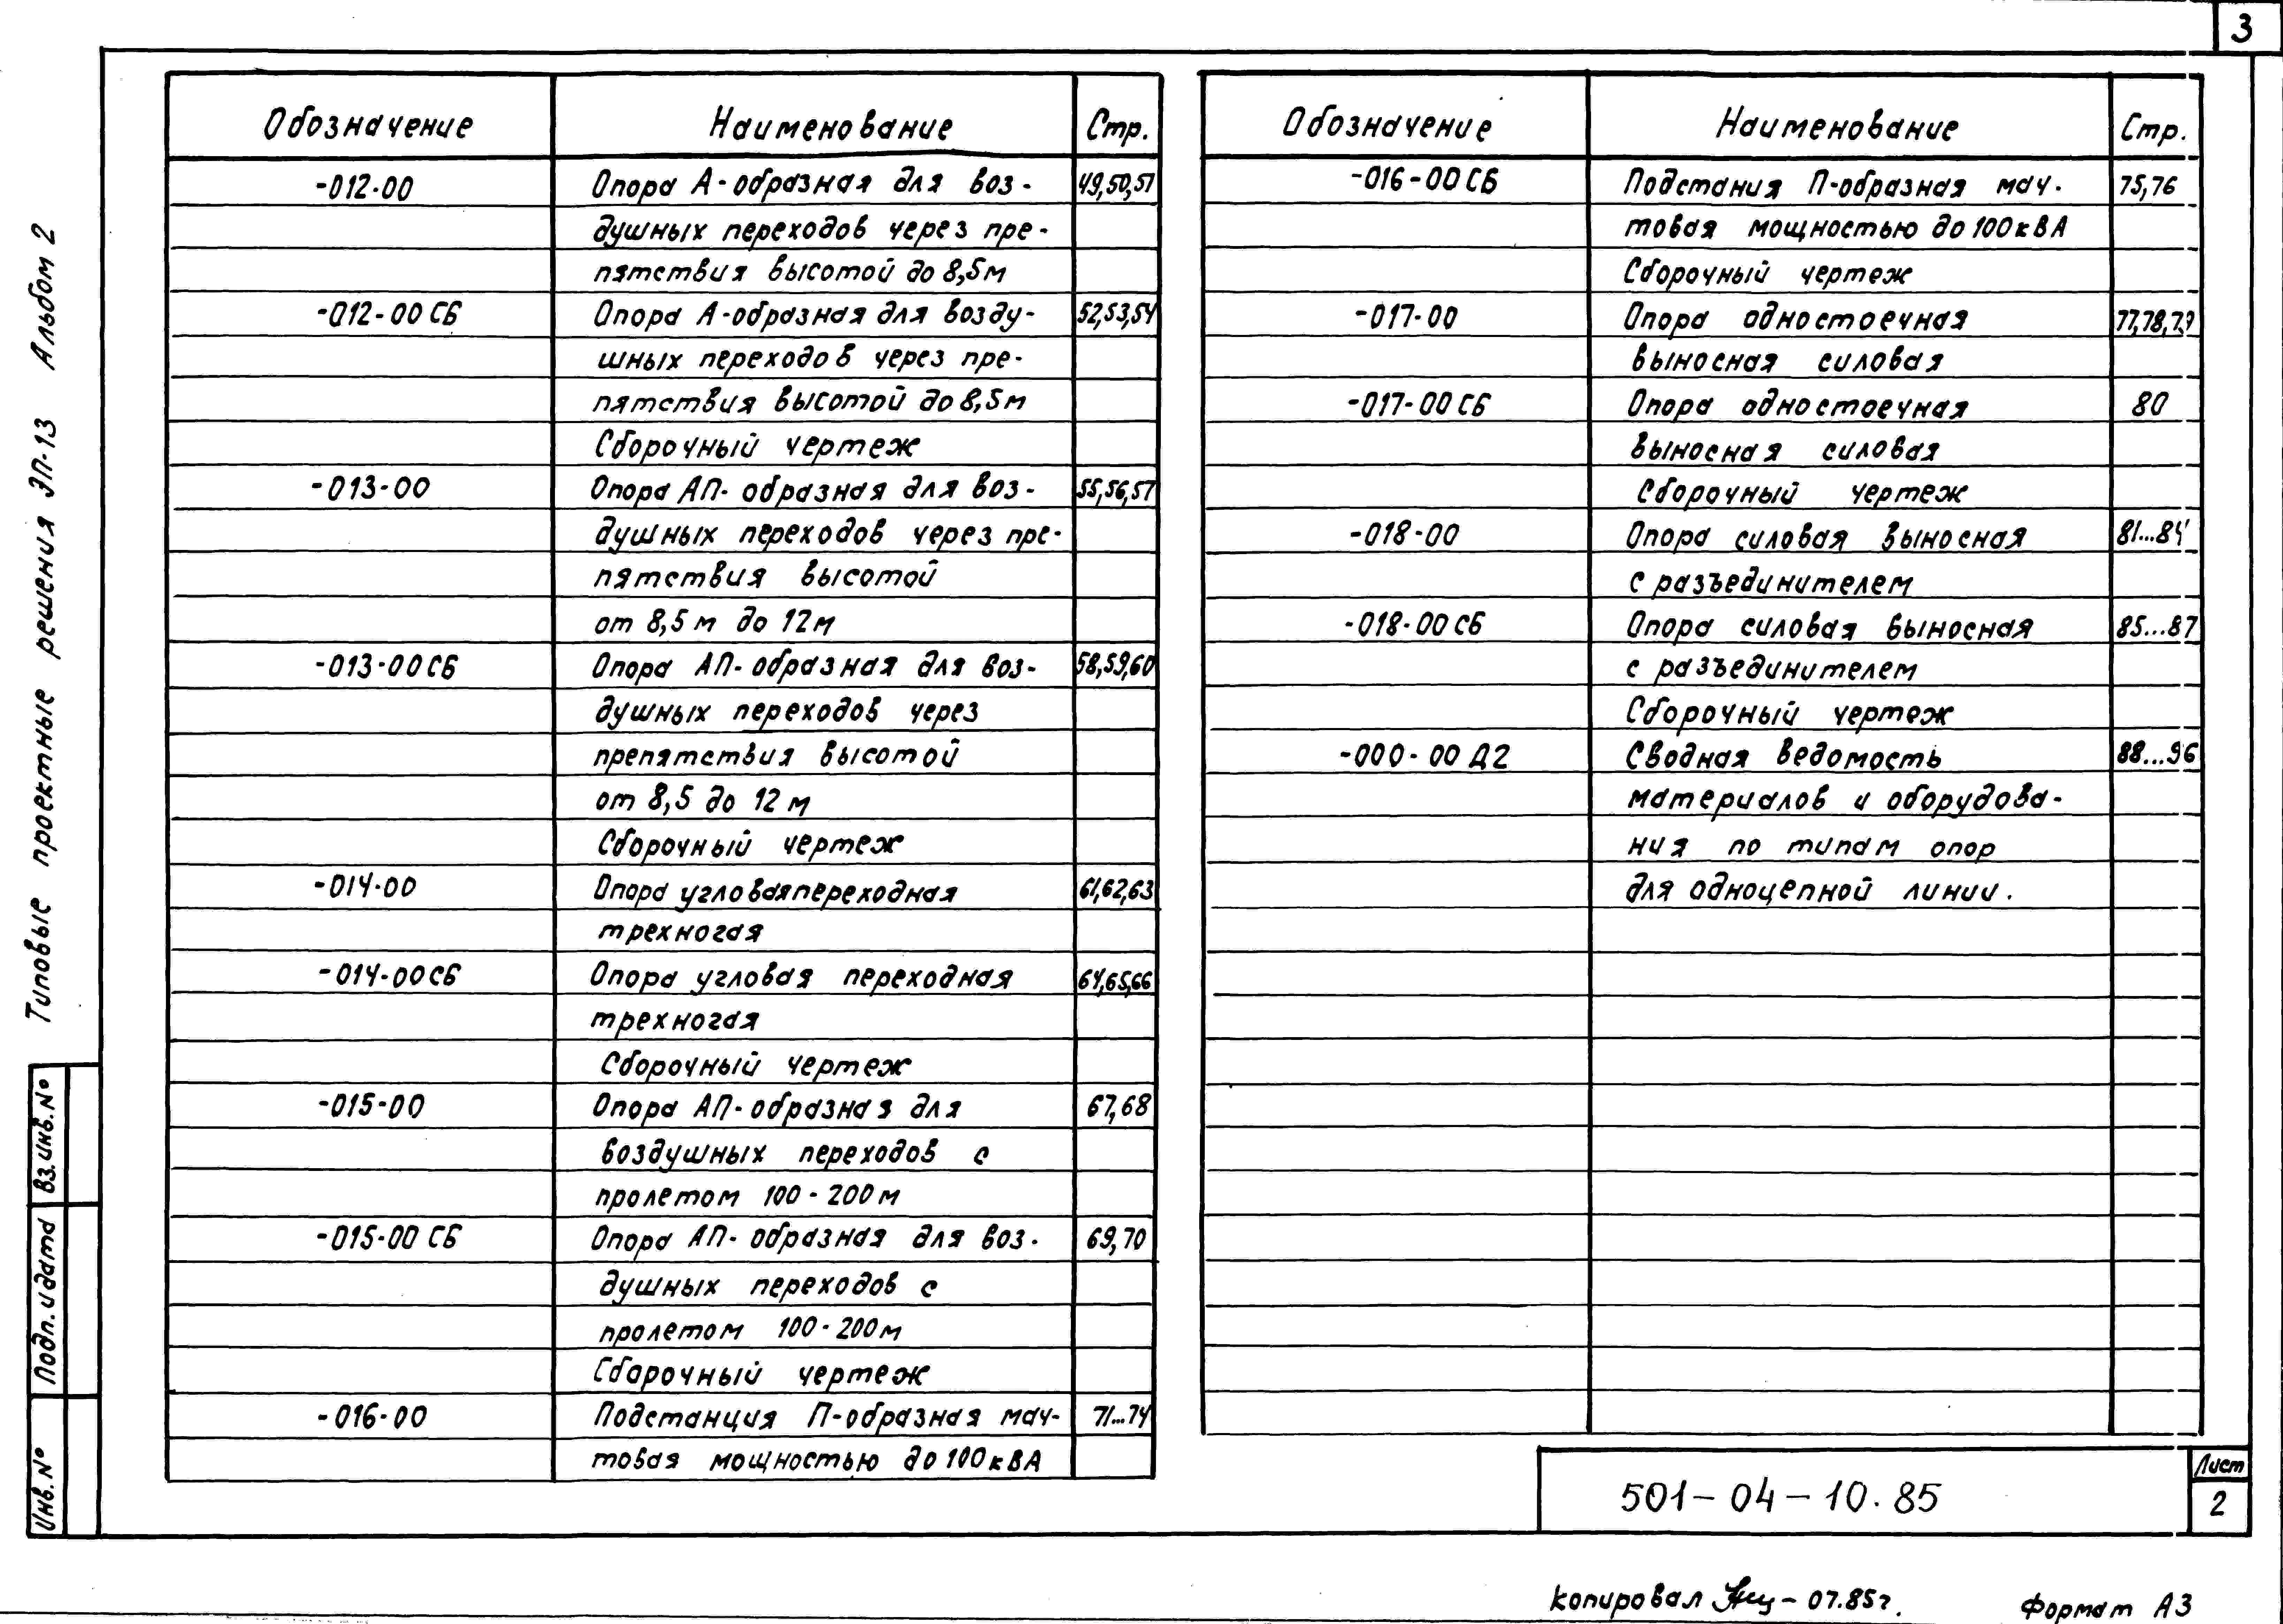 3
Типовые проектные решения ЭП-13 Альбом 2
Обозначение Наименование Стр.
-012-00 Опора А-образная для воз- 49,50,51
душных переходов через пре-
пятствия высотой до 8,5м
-012-00 СБ Опора А-образная для возду- 52,53,54
шных переходов через пре-
пятствия высотой до 8,5м
Сборочный чертеж
-013-00 Опора АП-образная для воз- 55,56,57
душных переходов через пре-
пятствия высотой
от 8,5 м до 12м
-013-00СБ Опора АП-образная для воз- 58,59,60
душных переходов через
препятствия высотой
от 8,5 до 12 м
Сборочный чертеж
-014-00 Опора угловая переходная 61,62,63
трехногая
-014-00СБ Опора угловая переходная 64,65,66
трехногая
Сборочный чертеж
-015-00 Опора АП-образная для 67,68
воздушных переходов с
пролетом 100-200м
-015-00 СБ Опора АП-образная для воз- 69,70
душных переходов с
пролетом 100-200м
Сборочный чертеж
-016-00 Подстанция П-образная мач- 71...74
товая мощностью до 100кВА
Обозначение Наименование Стр.
-016-00СБ Подстания П-образная мач- 75,76
товая мощностью до 100кВА
Сборочный чертеж
-017-00 Опора одностоечная 77,78,79
выносная силовая
-017-00СБ Опора одностоечная 80
выносная силовая
Сборочный чертеж
-018-00 Опора силовая выносная 81...84
с разъединителем
-018-00СБ Опора силовая выносная 85...87
с разъединителем
Сборочный чертеж
-000-00 Д2 Сводная ведомость 88...96
материалов и оборудова-
ния по типам опор
для одноцепной линии.
Вз.инв.N°
Подп. и дата
Инв.N°
501-04-10.85
Лист
2
копировал - 07.85г. Формат А3